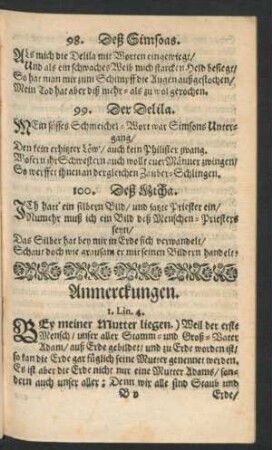 98. Deß Simsons.
ALs mich die Delila mit Worten eingewiegt/
Und als ein schwaches Weib mich starcken Held besiegt/
So hat man mir zum Schimpff die Augen außgestochen/
Mein Tod hat aber diß mehr als zu wol gerochen.
99. Der Delila.
MEin süsses Schmeichel-Wort war Simsons Unter-
gang/
Den kein erhitzter Löw/ auch kein Philister zwang.
Wofern ihr Schwestern auch wolt eure Männer zwingen/
So werffet ihnen an dergleichen Zauber-Schlingen.
100. Deß Micha.
ICh hatt' ein silbern Bild/ und satzte Priester ein/
Nunmehr muß ich ein Bild deß Menschen-Priesters
seyn/
Das Silber hat bey mir in Erde sich verwandelt/
Schau doch wie grausam er mit seinen Bildern handelt.
Anmerckungen.
1. Lin. 4.
BEy meiner Mutter liegen.) Weil der erste
Mensch/ unser aller Stamm- und Groß-Vater
Adam/ auß Erde gebildet/ und zu Erde worden ist/
so kan die Erde gar füglich seine Mutter genennet werden.
Es ist aber die Erde nicht nur eine Mutter Adams/ son-
dern auch unser aller; Denn wir alle sind Staub und
B v Erde/